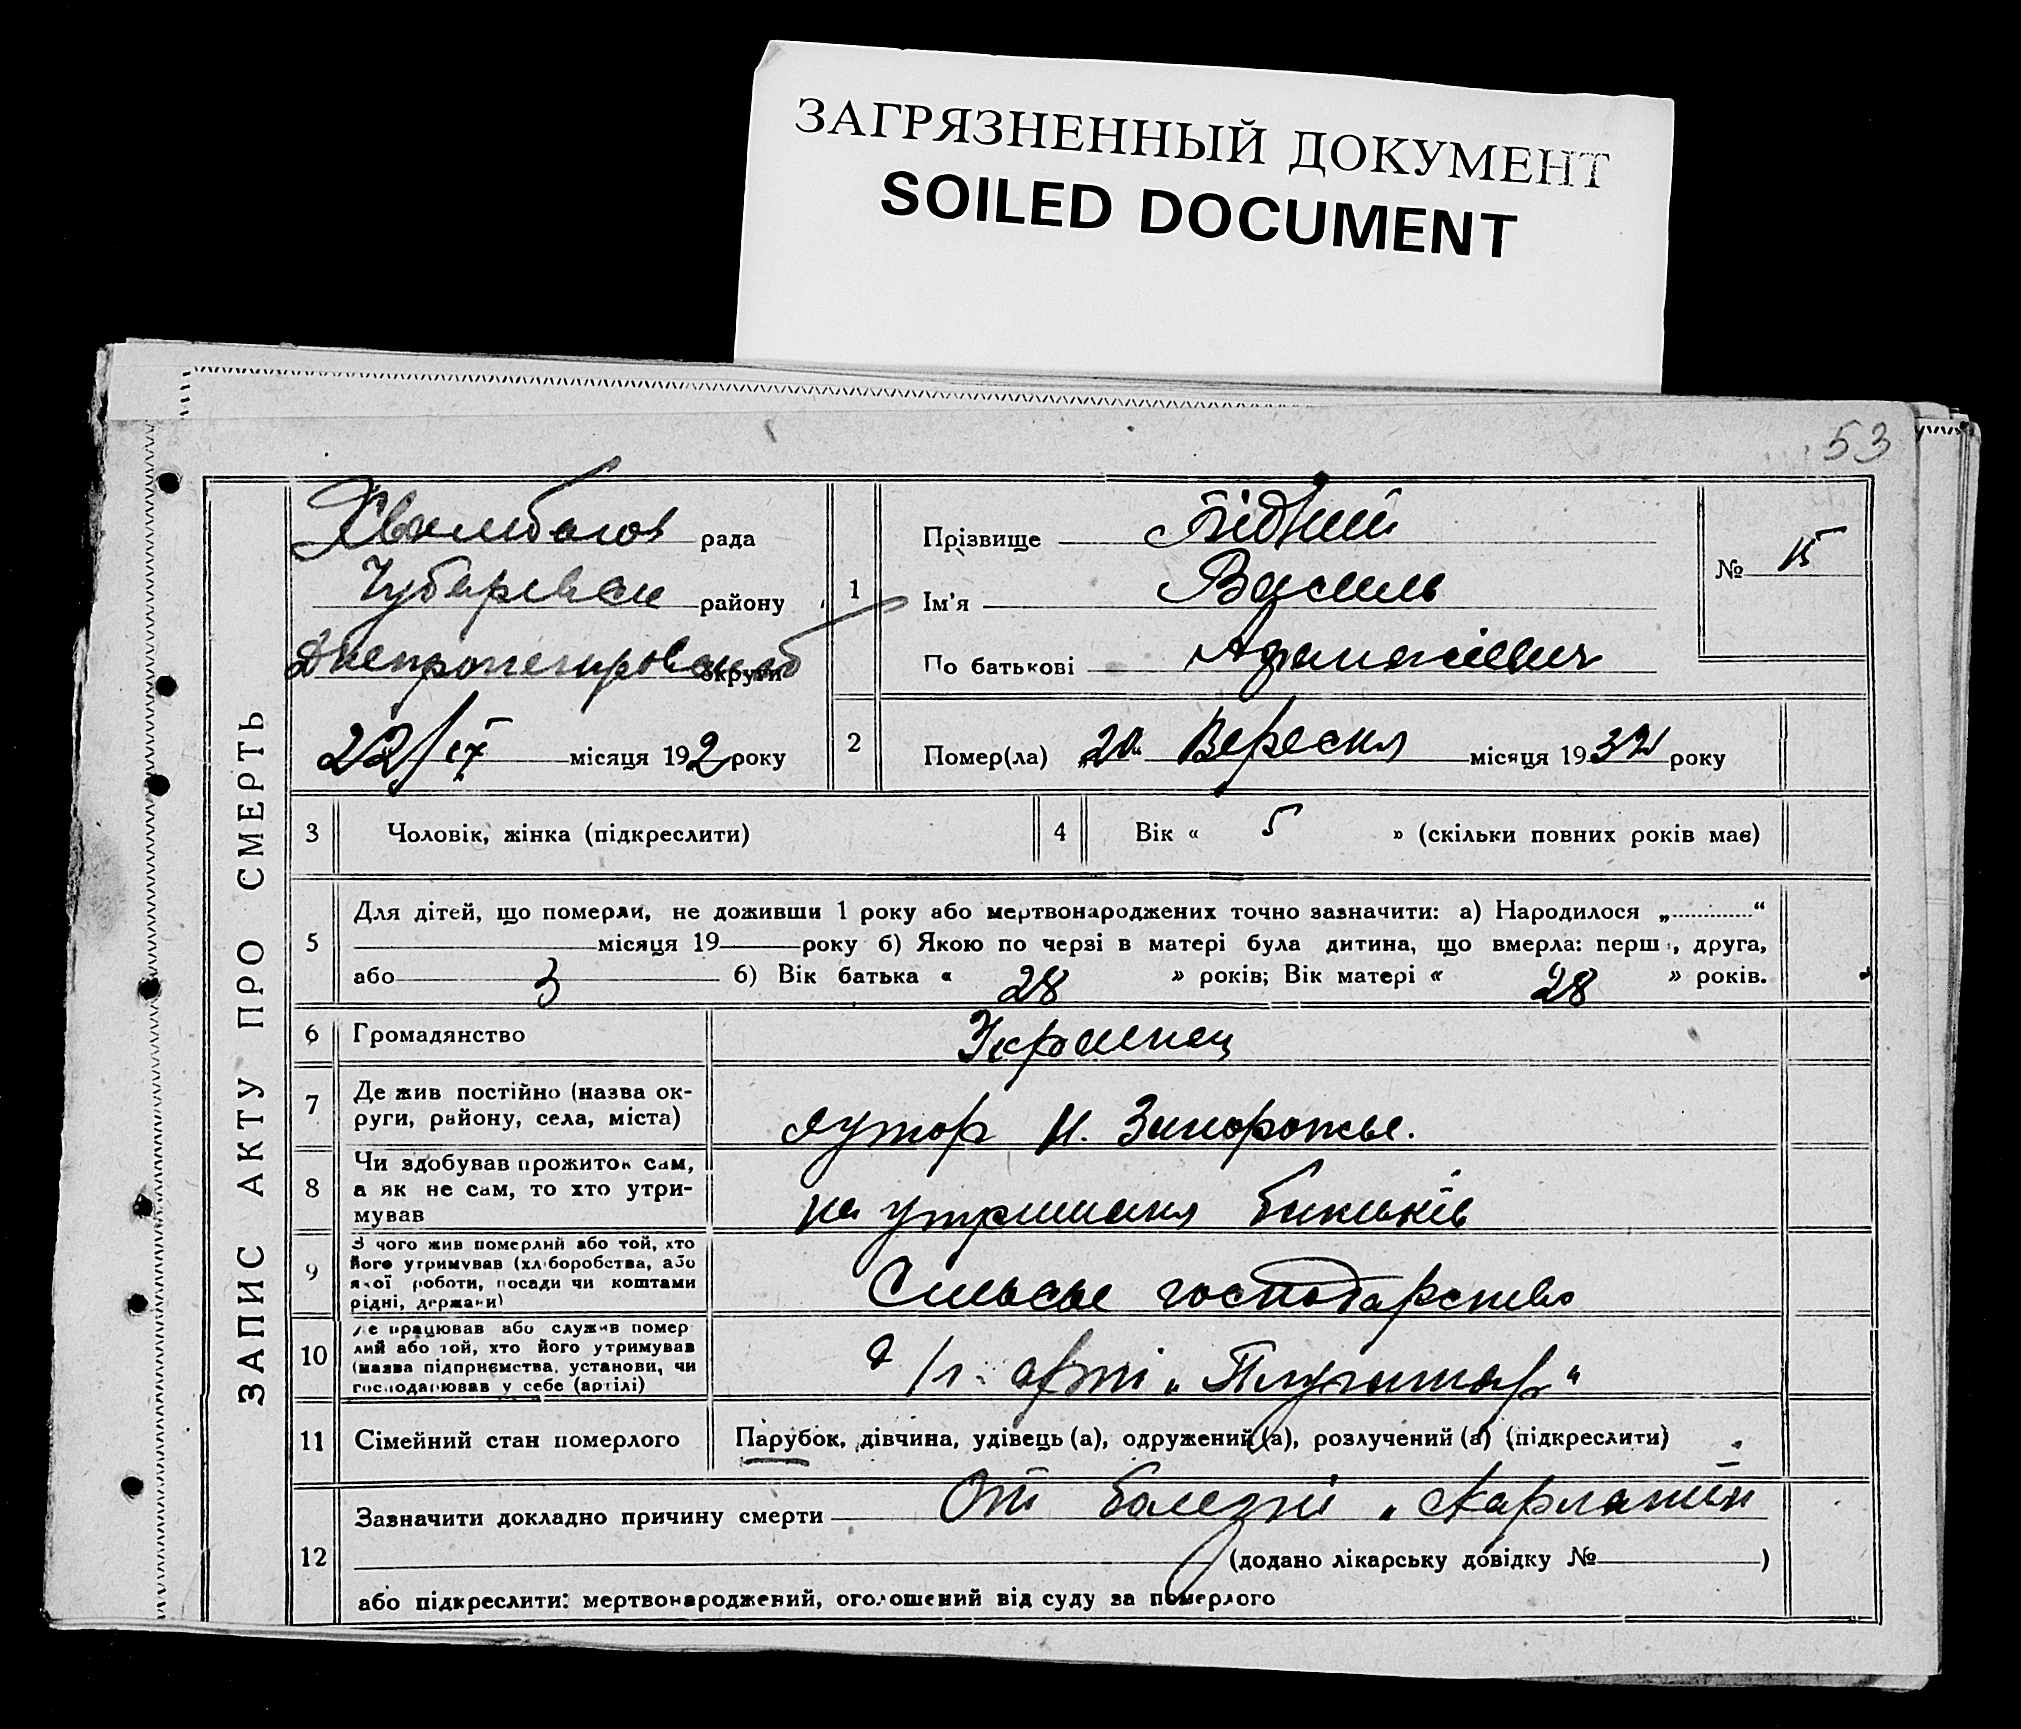 ЗАГРЯЗНЕННЫЙ ДОКУМЕНТ
SOILED DOCUMENT
53
ЗАПИС АКТУ ПРО СМЕРТЬ
рада
району
округи
22/ІХ місяця 192 2 року
1
Прізвище Бідний
Ім'я Василь
По батькові Афанасієвич
№ 15
2
Помер(ла) Вересня місяця 1932 року
3 Чоловік, жінка (підкреслити)
4 Вік « 5 » (скільки повних років має)
5
Для дітей, що померли, не доживши 1 року або мертвонароджених точно зазначити: а) Народилося „............“
місяця 19 року б) Якою по черзі в матері була дитина, що вмерла: перш , друга,
або 3 б) Вік батька « 28 » років; Вік матері « 28 » років.
6 Громадянство Украинец
7 Де жив постійно (назва ок-
руги, району, села, міста)
хутор Н. Запорожье.
8 Чи здобував прожиток сам,
а як не сам, то хто утри-
мував
на утриманя батьків
9 З чого жив померлий або той, хто
його утримував (хліборобства, або
якої роботи, посади чи коштами
рідні, держави)
Сильське господарство
10 Де працював або служив помер
лий або той, хто його утримував
(назва підприємства, установи, чи
господарював у себе (артілі)
арті „Плугатар“
11 Сімейний стан померлого
Парубок, дівчина, удівець (а), одружений (а), розлучений (а) (підкреслити)
12
Зазначити докладно причину смерти От болезні
(додано лікарську довідку № )
або підкреслити: мертвонароджений, оголошений від суду за померлого